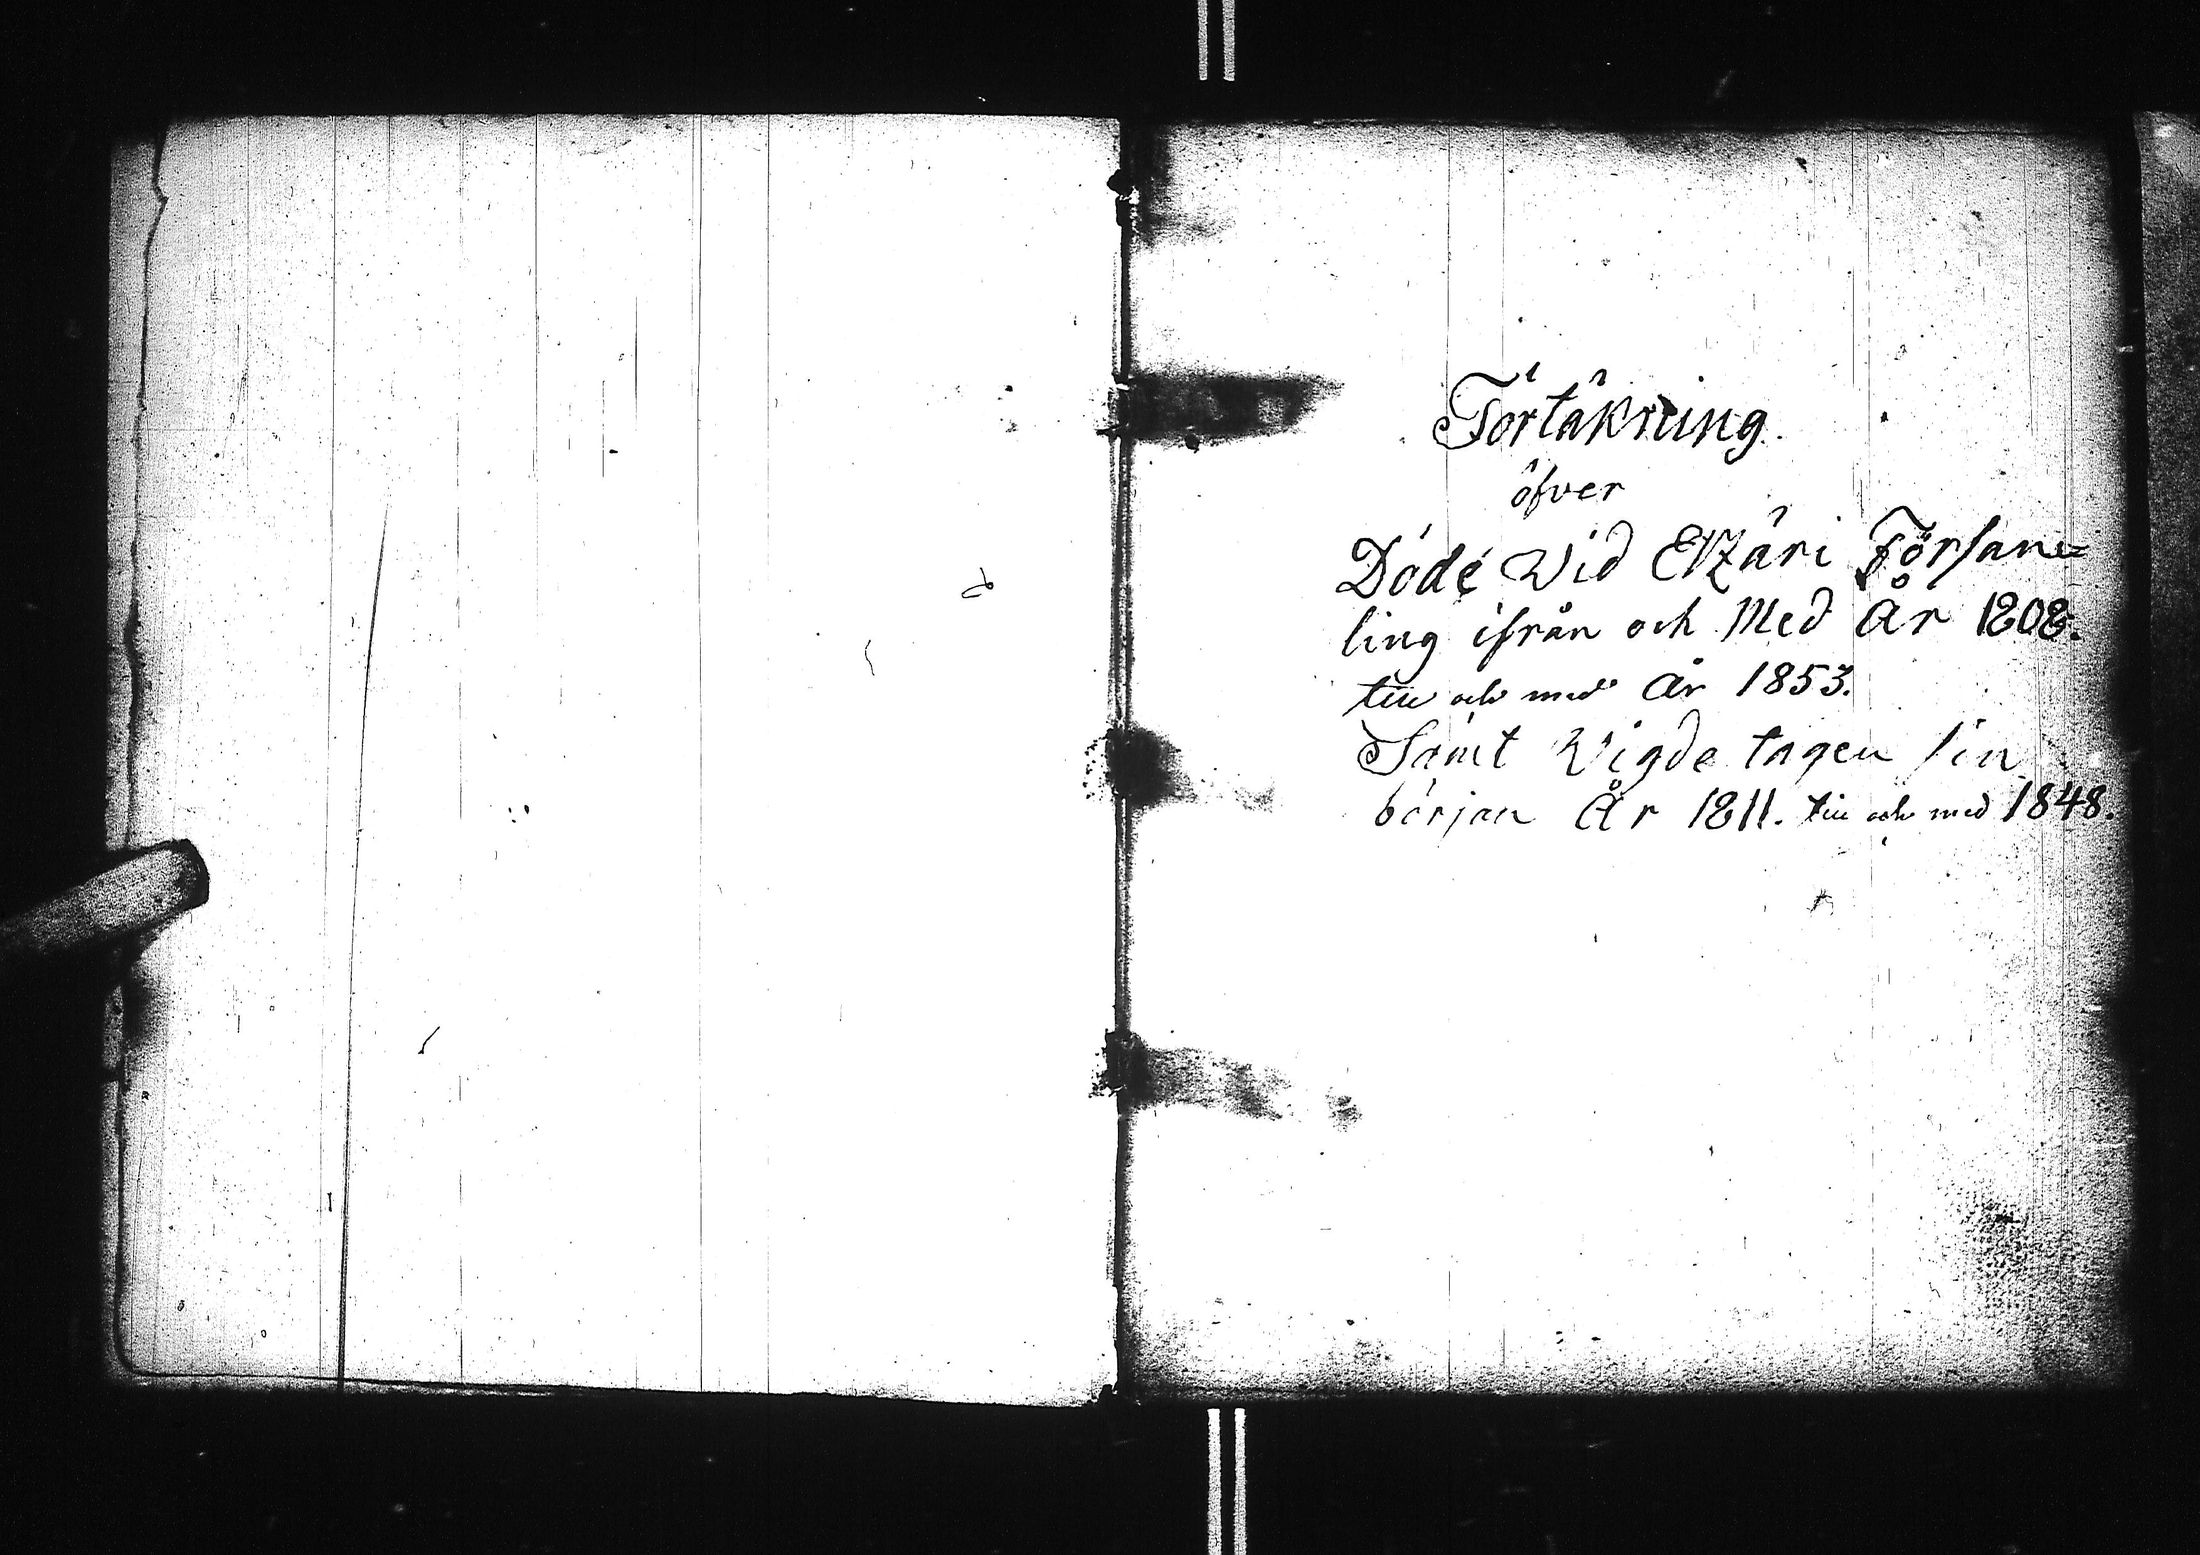 Förtäkning
öfver
Döde Wid Etzäri Försame=
ling ifrån och Med År 1808.
till och med År 1853.
Samt Wigde tagen sin
början År 1811. till och med 1848.